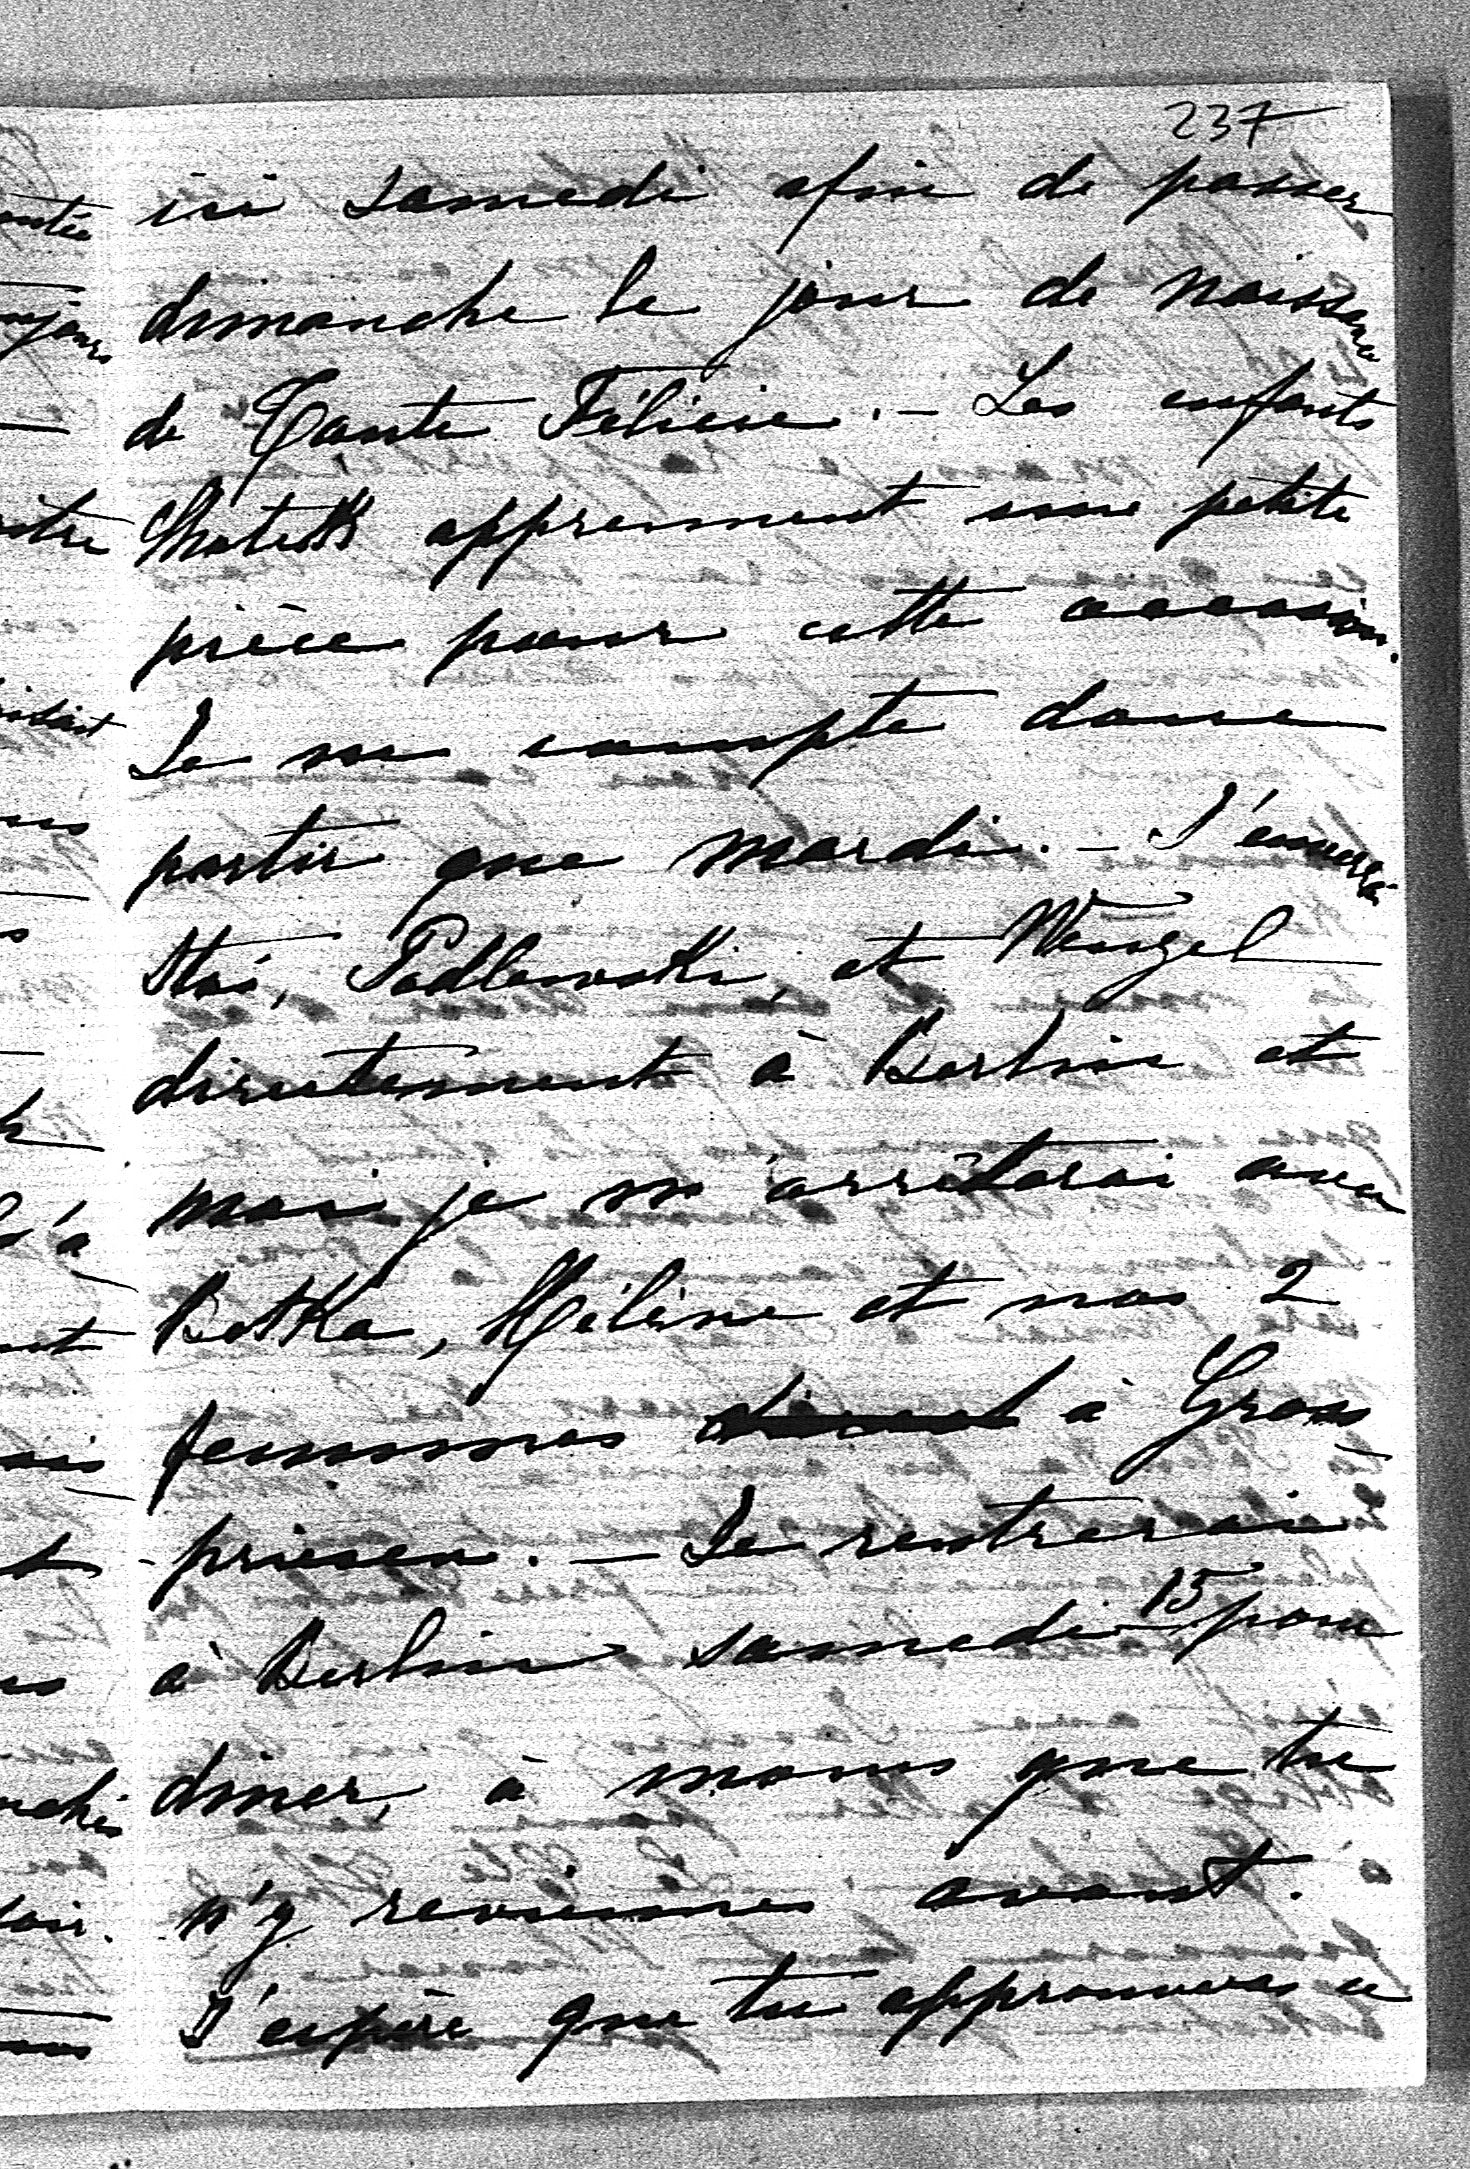 237
ici samedi afin de passer
dimanche le jour de naissance
de Tante Félicie. — Les enfants
apprennent une petite
pièce pour cette occasion.
Je ne compte donc
partir que mardi. — J'enverrai
Staś, Podlewski et Wenzel
directement à Berlin et
moi je m'arrêterai avec
Betka, Hélène et nos 2
femmes à Gross
priesen. — Je rentrerai
à Berlin samedi 15 pour
diner, à moins que tu
n'y reviennes avant.
J'espère que tu approuveras ce